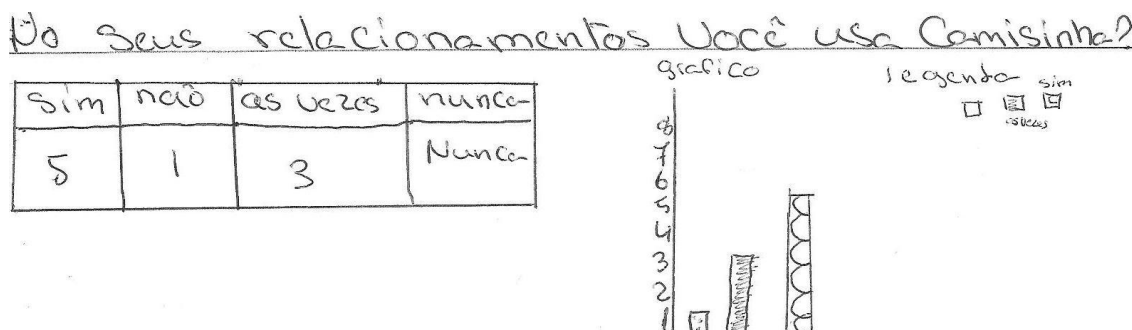 No seus relacionamentos você usa Camisinha?
sim não as vezes nunca
5 1 3 Nunca
grafico
8
7
6
5
4
3
2
1
legenda
sim
as vezes